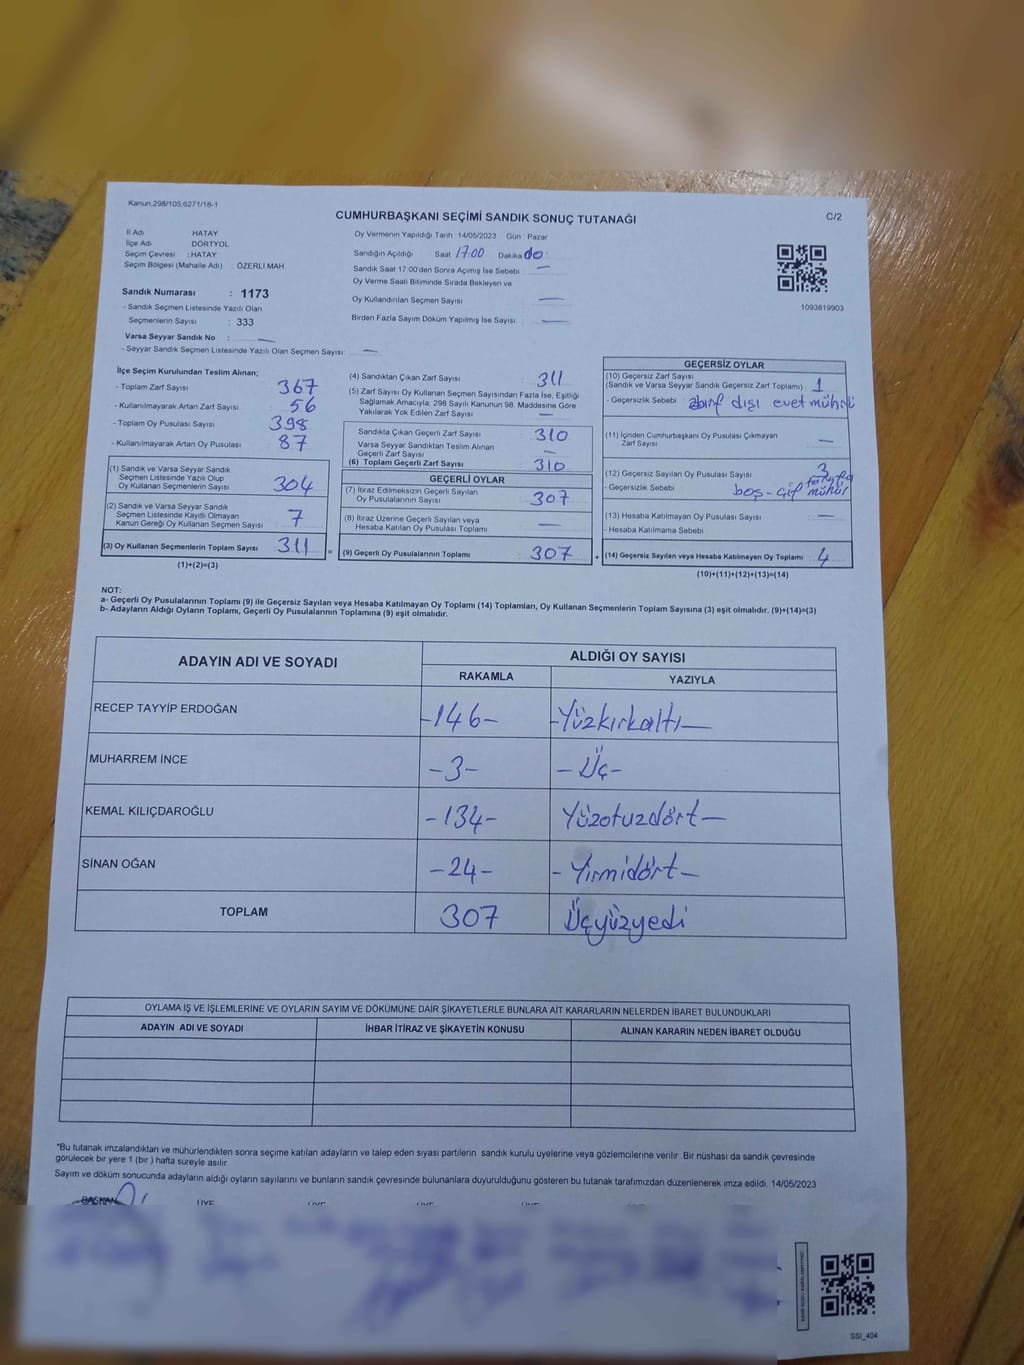 Kanun:298/105;6271/18-1
CUMHURBAŞKANI SEÇİMİ SANDIK SONUÇ TUTANAĞI
C/2
İl Adı HATAY
İlçe Adı DÖRTYOL
Seçim Çevresi : HATAY
Seçim Bölgesi (Mahalle Adı) : ÖZERLİ MAH
Sandık Numarası : 1173
- Sandık Seçmen Listesinde Yazılı Olan
Seçmenlerin Sayısı : 333
Varsa Seyyar Sandık No : —
- Seyyar Sandık Seçmen Listesinde Yazılı Olan Seçmen Sayısı: —
Oy Vermenin Yapıldığı Tarih : 14/05/2023 Gün : Pazar
Sandığın Açıldığı Saat 17.00 Dakika
Sandık Saat 17:00'den Sonra Açımış İse Sebebi —
Oy Verme Saati Bitiminde Sırada Bekleyen ve
Oy Kullandırılan Seçmen Sayısı —
Birden Fazla Sayım Döküm Yapılmış İse Sayısı —
1093619903
İlçe Seçim Kurulundan Teslim Alınan;
- Toplam Zarf Sayısı 367
- Kullanılmayarak Artan Zarf Sayısı 56
- Toplam Oy Pusulası Sayısı 398
- Kullanılmayarak Artan Oy Pusulası 87
(1) Sandık ve Varsa Seyyar Sandık
Seçmen Listesinde Yazılı Olup
Oy Kullanan Seçmenlerin Sayısı 304
(2) Sandık ve Varsa Seyyar Sandık
Seçmen Listesinde Kayıtlı Olmayan
Kanun Gereği Oy Kullanan Seçmen Sayısı 7
(3) Oy Kullanan Seçmenlerin Toplam Sayısı 311
(1)+(2)=(3)
(4) Sandıktan Çıkan Zarf Sayısı 311
(5) Zarf Sayısı Oy Kullanan Seçmen Sayısından Fazla İse, Eşitliği
Sağlamak Amacıyla, 298 Sayılı Kanunun 98. Maddesine Göre
Yakılarak Yok Edilen Zarf Sayısı —
Sandıkta Çıkan Geçerli Zarf Sayısı 310
Varsa Seyyar Sandıktan Teslim Alınan
Geçerli Zarf Sayısı —
(6) Toplam Geçerli Zarf Sayısı 310
GEÇERLİ OYLAR
(7) İtiraz Edilmeksizin Geçerli Sayılan
Oy Pusulalarının Sayısı 307
(8) İtiraz Üzerine Geçerli Sayılan veya
Hesaba Katılan Oy Pusulası Toplamı —
= (9) Geçerli Oy Pusulalarının Toplamı 307
GEÇERSİZ OYLAR
(10) Geçersiz Zarf Sayısı
(Sandık ve Varsa Seyyar Sandık Geçersiz Zarf Toplamı) 1
- Geçersizlik Sebebi dışı evet mühürlü
(11) İçinden Cumhurbaşkanı Oy Pusulası Çıkmayan
Zarf Sayısı —
(12) Geçersiz Sayılan Oy Pusulası Sayısı 3
- Geçersizlik Sebebi boş - çift mühür
(13) Hesaba Katılmayan Oy Pusulası Sayısı —
- Hesaba Katılmama Sebebi
+ (14) Geçersiz Sayılan veya Hesaba Katılmayan Oy Toplamı 4
(10)+(11)+(12)+(13)=(14)
NOT:
a- Geçerli Oy Pusulalarının Toplamı (9) ile Geçersiz Sayılan veya Hesaba Katılmayan Oy Toplamı (14) Toplamları, Oy Kullanan Seçmenlerin Toplam Sayısına (3) eşit olmalıdır. (9)+(14)=(3)
b- Adayların Aldığı Oyların Toplamı, Geçerli Oy Pusulalarının Toplamına (9) eşit olmalıdır.
ADAYIN ADI VE SOYADI ALDIĞI OY SAYISI
RAKAMLA YAZIYLA
RECEP TAYYİP ERDOĞAN -146- -Yüzkırkaltı-
MUHARREM İNCE -3- -Üç-
KEMAL KILIÇDAROĞLU -134- Yüzotuzdört-
SİNAN OĞAN -24- -Yirmidört-
TOPLAM 307 Üçyüzyedi
OYLAMA İŞ VE İŞLEMLERİNE VE OYLARIN SAYIM VE DÖKÜMÜNE DAİR ŞİKAYETLERLE BUNLARA AİT KARARLARIN NELERDEN İBARET BULUNDUKLARI
ADAYIN ADI VE SOYADI İHBAR İTİRAZ VE ŞİKAYETİN KONUSU ALINAN KARARIN NEDEN İBARET OLDUĞU
*Bu tutanak imzalandıktan ve mühürlendikten sonra seçime katılan adayların ve talep eden siyasi partilerin sandık kurulu üyelerine veya gözlemcilerine verilir. Bir nüshası da sandık çevresinde
görülecek bir yere 1 (bir ) hafta süreyle asılır
Sayım ve döküm sonucunda adayların aldığı oyların sayılarını ve bunların sandık çevresinde bulunanlara duyurulduğunu gösteren bu tutanak tarafımızdan düzenlenerek imza edildi. 14/05/2023
BAŞKAN ÜYE ÜYE ÜYE ÜYE
SSI_404